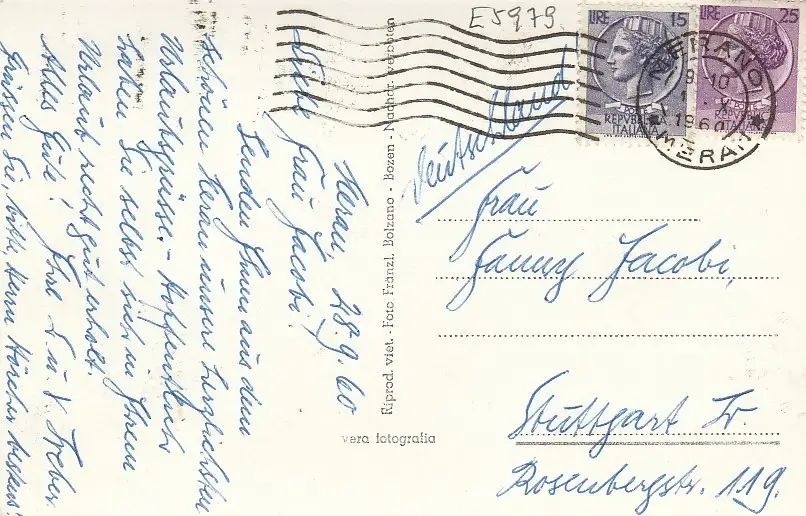 E5979
LIRE 15
REPVBBLICA
ITALIANA
LIRE 25
REPVBBLICA
ITALIANA
MERANO
19 60
MERAN
Meran, 28.9.60.
Liebe Frau Jacobi!
Senden Ihnen aus dem
schönen Meran unsere herzlichsten
Urlaubsgrüsse. - Hoffentlich
haben Sie selbst sich in Ihrem
Urlaub recht gut erholt.
Alles Gute! Ihre
Grüssen Sie, bitte, Herrn bestens!
Riprod. viet. - Foto Fränzl, Bolzano - Bozen - Nachdr. verboten
vera fotografia
Deutschland!
Frau
Fanny Jacobi,
Stuttgart W.
Rosenbergstr. 119.